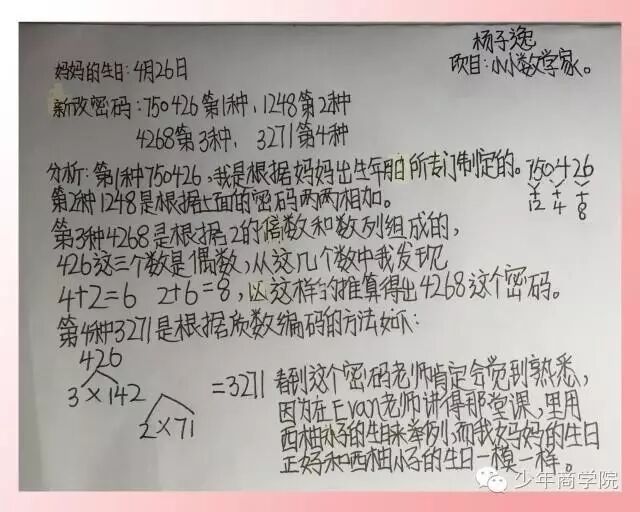 杨子逸
项目:小小数学家。
妈妈的生日:4月26日
新改密码:750426第1种,1248第2种
4268第3种、3271第4种
分析:第1种750426,我是根据妈妈出生年月日所专门制定的。750426
第2种1248是根据上面的密码两两相加。 12 4 8
第3种4268是根据2的倍数和数列组成的,
426这三个数是偶数,从这几个数中我发现
4+2=6 2+6=8,以这样的推算得出4268这个密码。
第4种3271是根据质数编码的方法如下:
426
3×142
2×71
=3271
看到这个密码老师肯定会觉到熟悉,
因为在Evan老师讲得那堂课,里用
西柚小子的生日来举例,而我妈妈的生日
正好和西柚小子的生日一模一样。
少年商学院